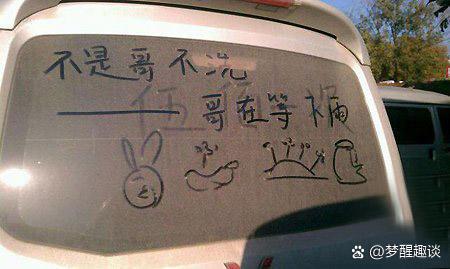 不是哥不洗
——哥在等
梦醒趣谈